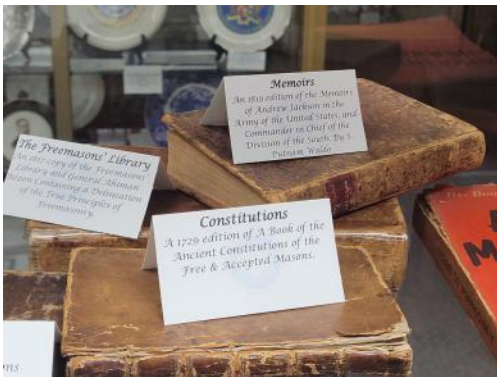 Memoirs
An 1819 edition of the Memoirs
of Andrew Jackson in the
Army of the United States, and
Commander in Chief of the
Division of the South. By S.
Putnam Waldo
The Freemasons' Library
An 1817 copy of the Freemasons
Library and General Ahiman
Rezon Containing a Delineation
of the True Principles of
Freemasonry.
Constitutions
A 1729 edition of A Book of the
Ancient Constitutions of the
Free & Accepted Masons.